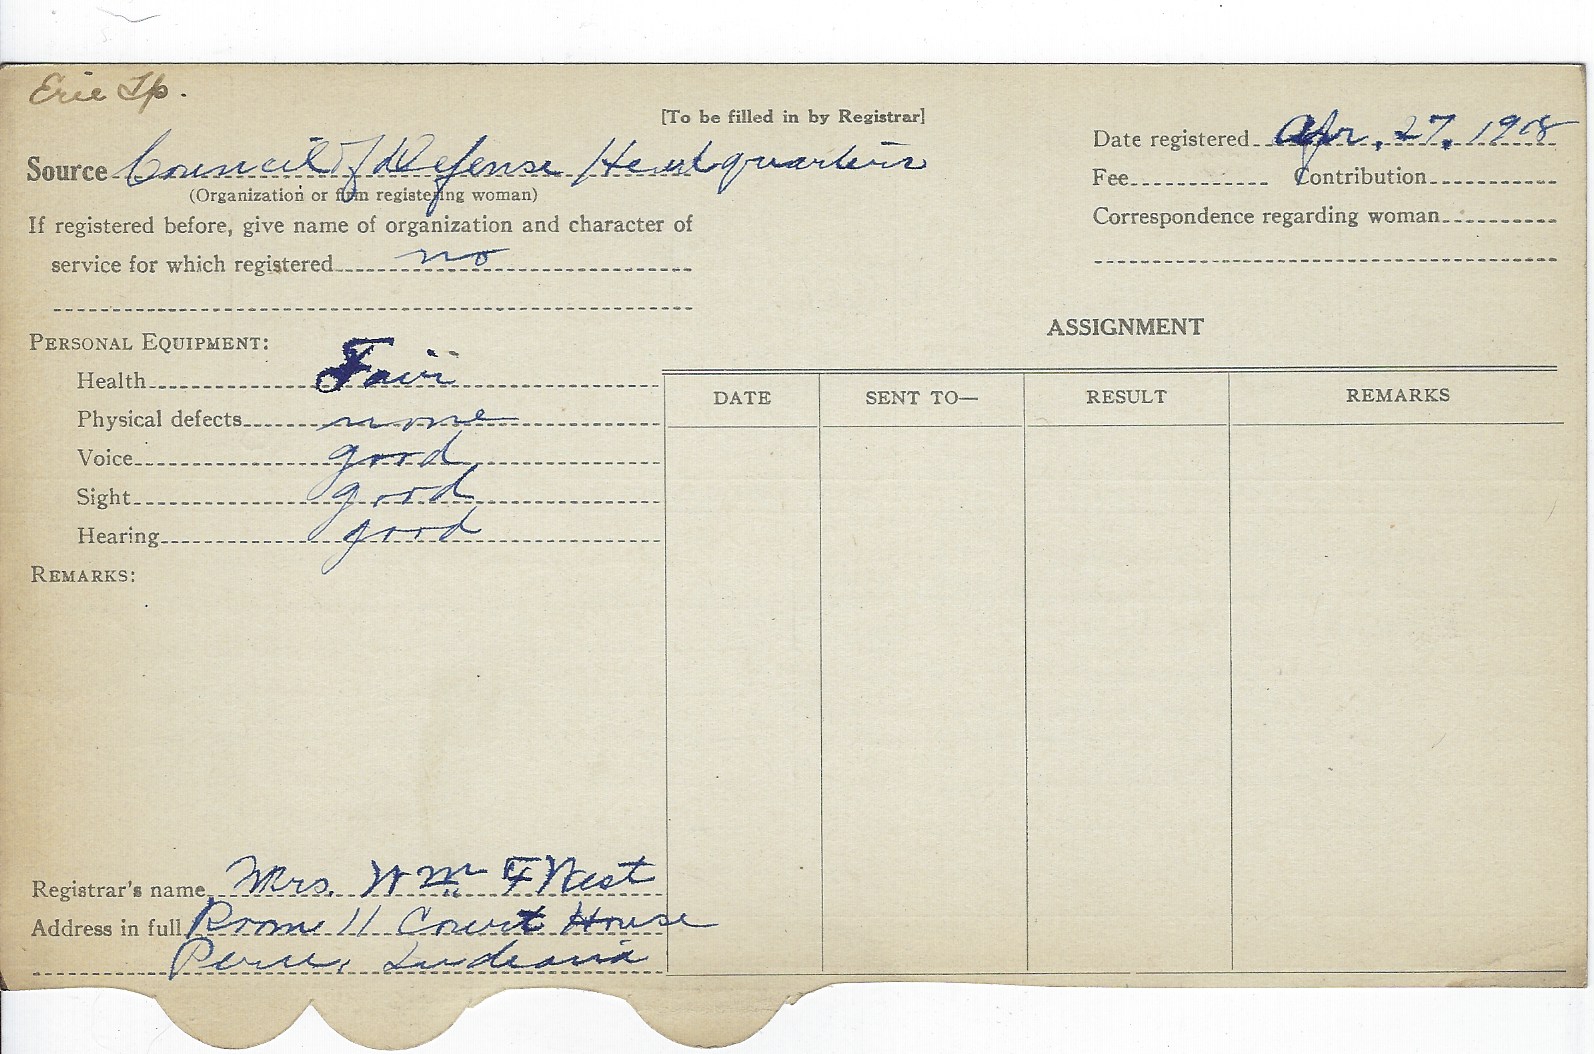 Erie Tp.
[To be filled in by Registrar]
Source Council of Defense Headquarters
(Organization or firm registering woman)
Date registered Apr. 27, 1918
Fee Contribution
Correspondence regarding woman
If registered before, give name of organization and character of
service for which registered no
PERSONAL EQUIPMENT:
Health Fair
Physical defects none
Voice good
Sight good
Hearing good
REMARKS:
ASSIGNMENT
DATE SENT TO— RESULT REMARKS
Registrar's name Mrs. Wm F West
Address in full Room 11 Court House
Peru, Indiana